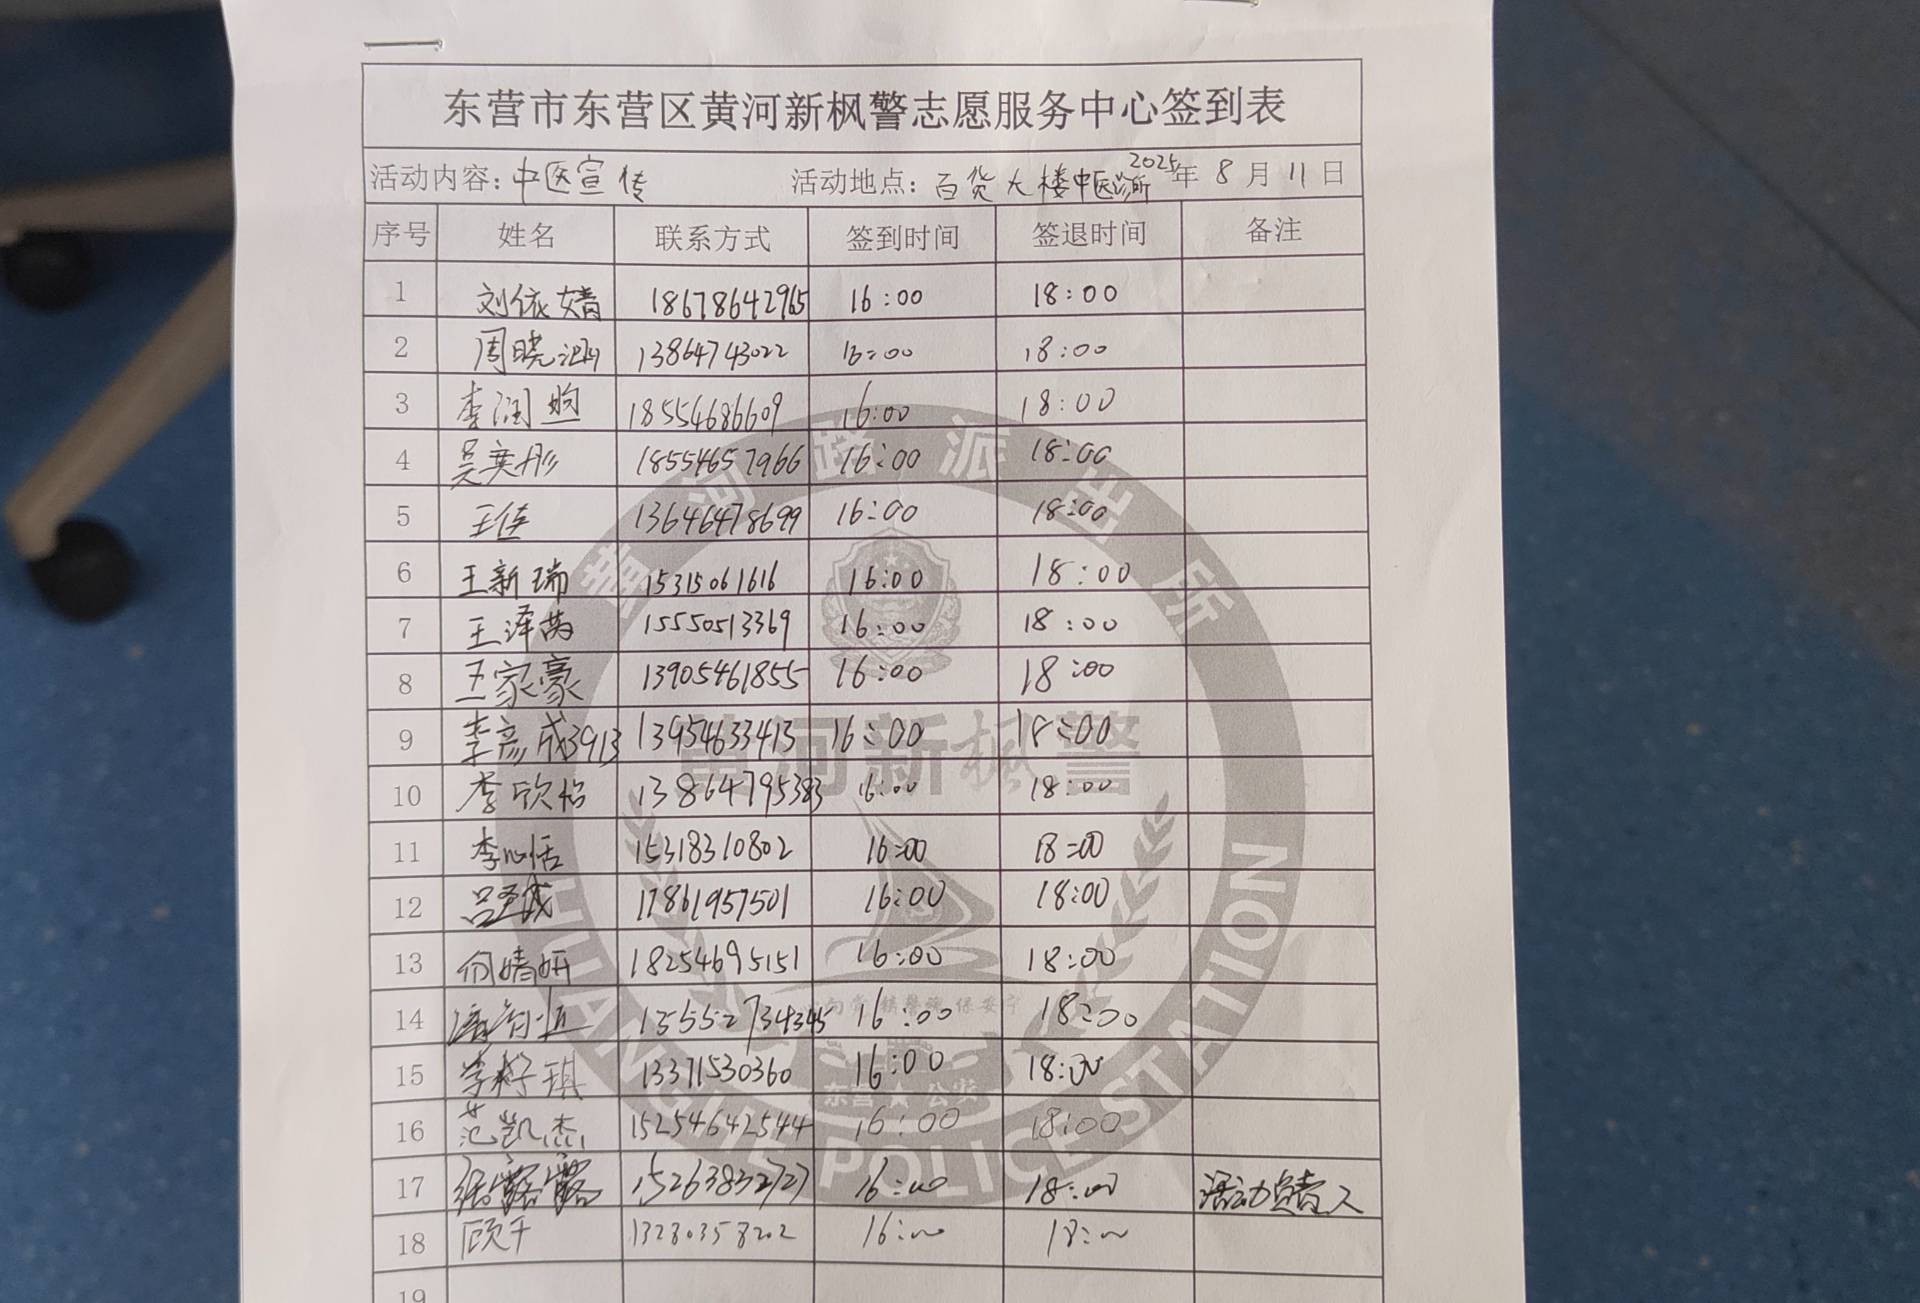 东营市东营区黄河新枫警志愿服务中心签到表
活动内容：中医宣传 活动地点：百货大楼中医诊所 2025年 8 月 11 日
序号 姓名 联系方式 签到时间 签退时间 备注
1 刘依婧 18678642965 16:00 18:00
2 周晓涵 13864743022 16:00 18:00
3 李润煦 18554686609 16:00 18:00
4 吴奕彤 18554657966 16:00 18:00
5 王佳 13646478699 16:00 18:00
6 王新瑞 15315061616 16:00 18:00
7 王泽茜 15550513369 16:00 18:00
8 王家豪 13905461855 16:00 18:00
9 李彦成3913 13954633413 16:00 18:00
10 李欣怡 13864795383 16:00 18:00
11 李心恬 15318310802 16:00 18:00
12 吕圣 17861957501 16:00 18:00
13 何婧妍 18254695151 16:00 18:00
14 15552734345 16:00 18:00
15 李籽琪 13371530360 16:00 18:00
16 范凯杰 15254642544 16:00 18:00
17 张露露 15263832727 16:00 18:00 活动负责人
18 顾千 13280358202 16:00 18:00
19
黄河路派出所
黄河新枫警
保安宁
东营★公安
HUANGHE POLICE STATION